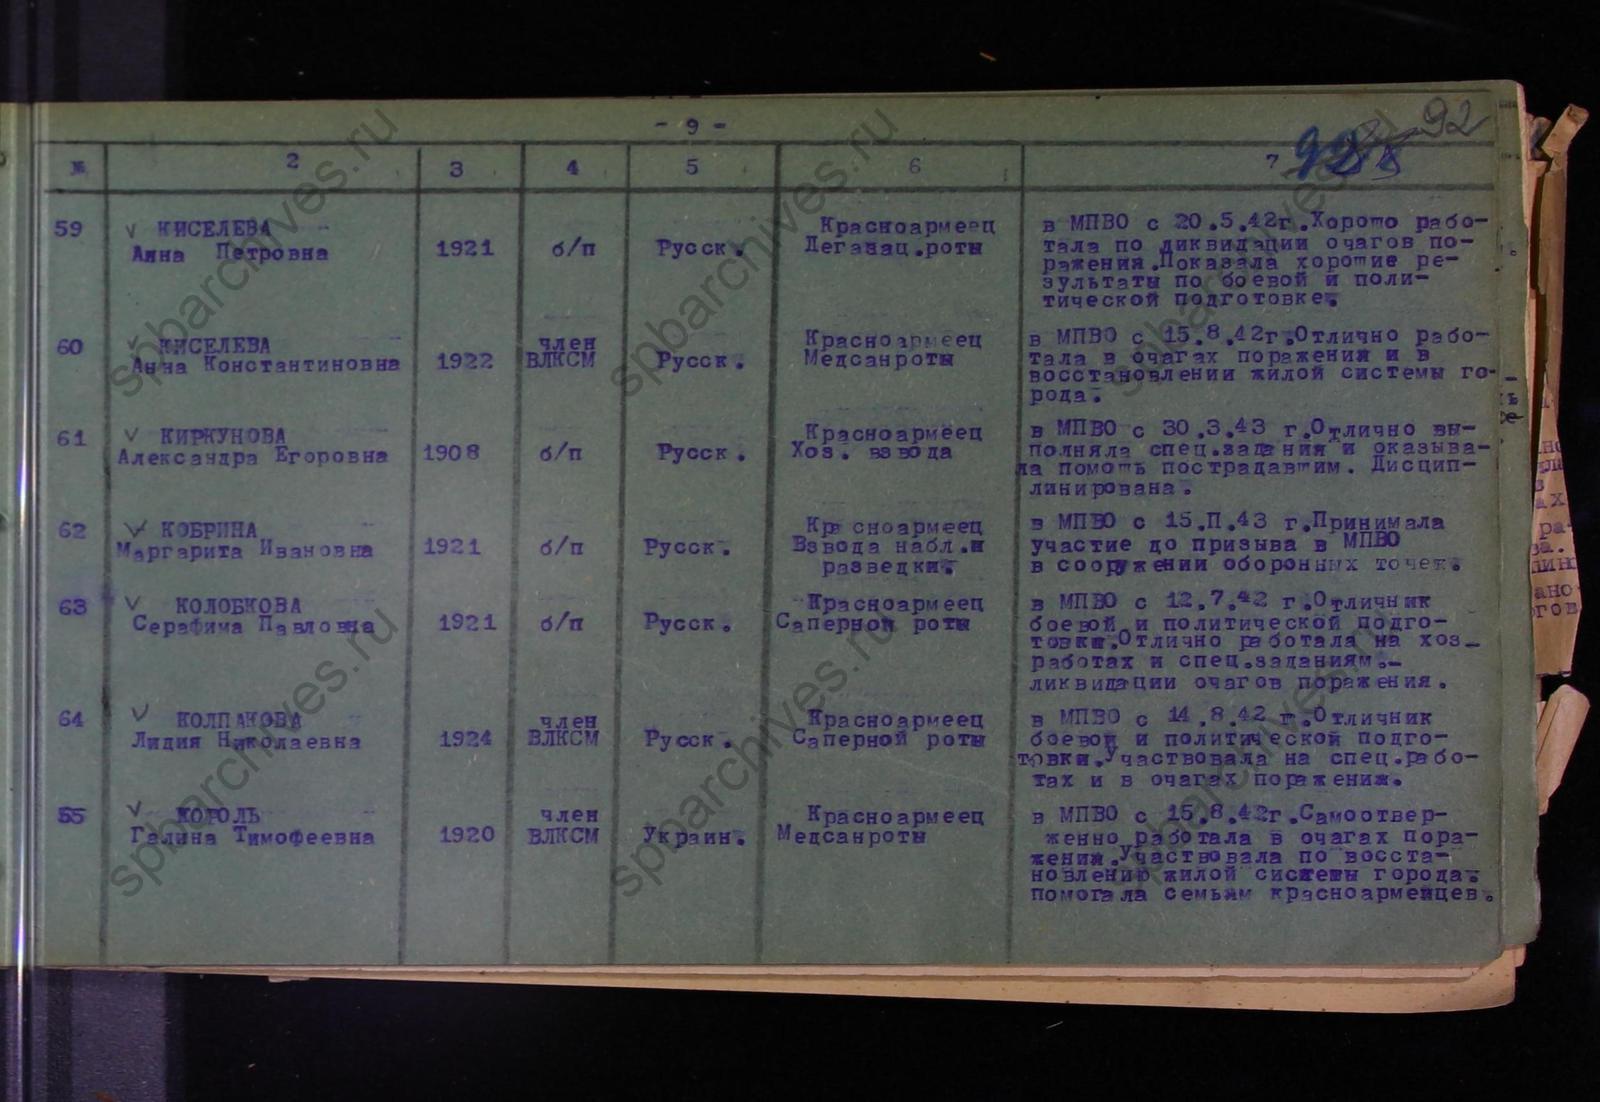 - 9 -
92
№ 2 3 4 5 6 7
59 √ КИСЕЛЕВА
Анна Петровна 1921 б/п Русск. Красноармеец
Дегазац.роты в МПВО с 20.5.42г.Хорошо рабо-
тала по ликвидации очагов по-
ражения.Показала хорошие ре-
зультаты по боевой и поли-
тической подготовке.
60 √ КИСЕЛЕВА
Анна Константиновна 1922 член
ВЛКСМ Русск. Красноармеец
Медсанроты в МПВО с 15.8.42г.Отлично рабо-
тала в очагах поражения и в
восстановлении жилой системы го-
рода.
61 √ КИРКУНОВА
Александра Егоровна 1908 б/п Русск. Красноармеец
Хоз. взвода в МПВО с 30.3.43 г.Отлично вы-
полняла спец.задания и оказыва-
ла помощь пострадавшим. Дисцип-
линирована.
62 √ КОБРИНА
Маргарита Ивановна 1921 б/п Русск. Красноармеец
Взвода набл.и
разведки. в МПВО с 15.П.43 г.Принимала
участие до призыва в МПВО
в сооружении оборонных точек.
63 √ КОЛОБКОВА
Серафима Павловна 1921 б/п Русск. Красноармеец
Саперной роты в МПВО с 12.7.42 г.Отличник
боевой и политической подго-
товки.Отлично работала на хоз-
работах и спец.заданиям.-
ликвидации очагов поражения.
64 √ КОЛПАКОВА
Лидия Николаевна 1924 член
ВЛКСМ Русск. Красноармеец
Саперной роты в МПВО с 14.8.42 г.Отличник
боевой и политической подго-
товки.Участвовала на спец.рабо-
тах и в очагах поражения.
65 √ КОРОЛЬ
Галина Тимофеевна 1920 член
ВЛКСМ Украин. Красноармеец
Медсанроты в МПВО с 15.8.42г.Самоотвер-
женно работала в очагах пора-
жения.Участвовала по восста-
новлению жилой системы города.
помогала семьям красноармейцев.
spbarchives.ru
spbarchives.ru
spbarchives.ru
spbarchives.ru
spbarchives.ru
spbarchives.ru